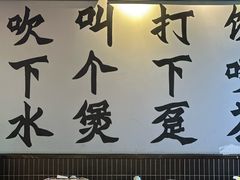 打下趸
叫个煲
吹下水